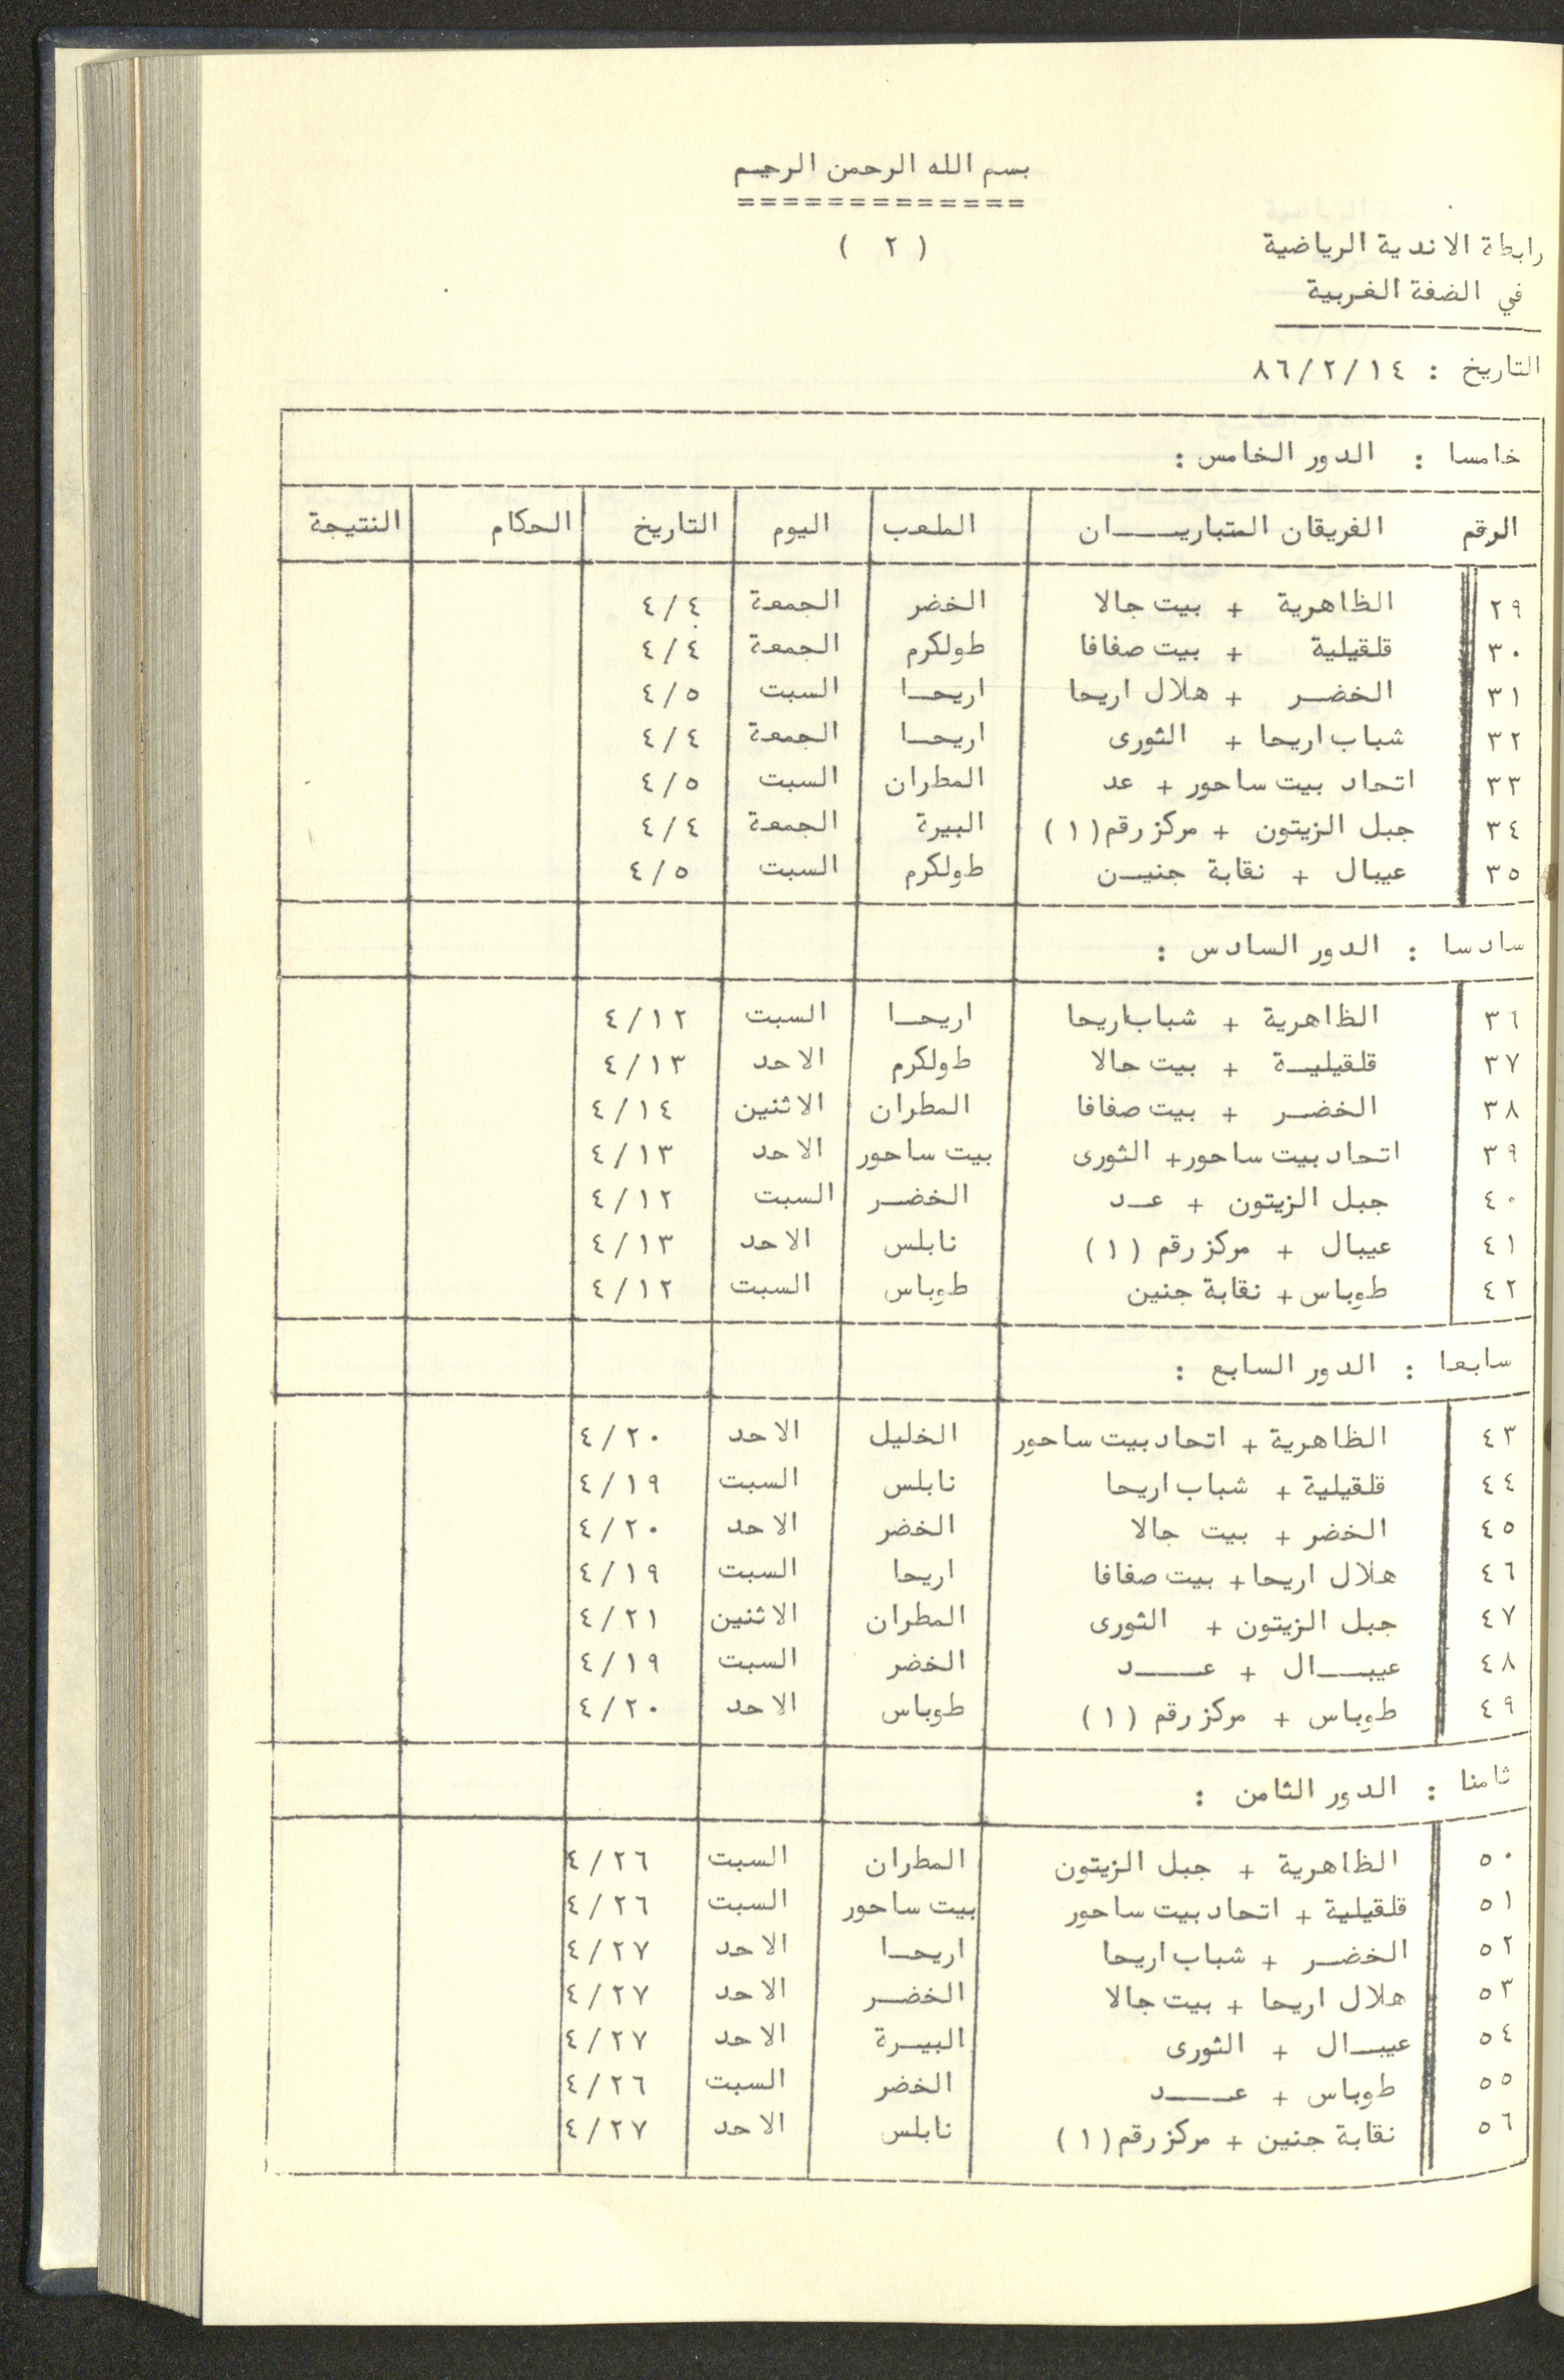 بسم الله الرحمن الرحيم
=============
( ٢ )
رابطة الاندية الرياضية
في الضفة الغربية
التاريخ : ٨٦/٢/١٤
خامسا : الدور الخامس :
الرقم الفريقان المتباريـــــان الملعب اليوم التاريخ الحكام النتيجة
٢٩ الظاهرية + بيت جالا الخضر الجمعة ٤/٤
٣٠ قلقيلية + بيت صفافا طولكرم الجمعة ٤/٤
٣١ الخضـــر + هلال اريحا اريحـــا السبت ٤/٥
٣٢ شباب اريحا + الثورى اريحـــا الجمعة ٤/٤
٣٣ اتحاد بيت ساحور + عد المطران السبت ٤/٥
٣٤ جبل الزيتون + مركز رقم (١) البيرة الجمعة ٤/٤
٣٥ عيبال + نقابة جنيـــن طولكرم السبت ٤/٥
سادسا : الدور السادس :
٣٦ الظاهرية + شباب اريحا اريحـــا السبت ٤/١٢
٣٧ قلقيليـــة + بيت جالا طولكرم الاحد ٤/١٣
٣٨ الخضـــر + بيت صفافا المطران الاثنين ٤/١٤
٣٩ اتحاد بيت ساحور + الثورى بيت ساحور الاحد ٤/١٣
٤٠ جبل الزيتون + عـــد الخضـــر السبت ٤/١٢
٤١ عيبال + مركز رقم (١) نابلس الاحد ٤/١٣
٤٢ طوباس + نقابة جنين طوباس السبت ٤/١٢
سابعا : الدور السابع :
٤٣ الظاهرية + اتحاد بيت ساحور الخليل الاحد ٤/٢٠
٤٤ قلقيلية + شباب اريحا نابلس السبت ٤/١٩
٤٥ الخضر + بيت جالا الخضر الاحد ٤/٢٠
٤٦ هلال اريحا + بيت صفافا اريحا السبت ٤/١٩
٤٧ جبل الزيتون + الثورى المطران الاثنين ٤/٢١
٤٨ عيبـــــال + عـــــد الخضر السبت ٤/١٩
٤٩ طوباس + مركز رقم (١) طوباس الاحد ٤/٢٠
ثامنا : الدور الثامن :
٥٠ الظاهرية + جبل الزيتون المطران السبت ٤/٢٦
٥١ قلقيلية + اتحاد بيت ساحور بيت ساحور السبت ٤/٢٦
٥٢ الخضـــر + شباب اريحا اريحـــا الاحد ٤/٢٧
٥٣ هلال اريحا + بيت جالا الخضـــر الاحد ٤/٢٧
٥٤ عيبـــال + الثورى البيـــرة الاحد ٤/٢٧
٥٥ طوباس + عـــــد الخضر السبت ٤/٢٦
٥٦ نقابة جنين + مركز رقم (١) نابلس الاحد ٤/٢٧